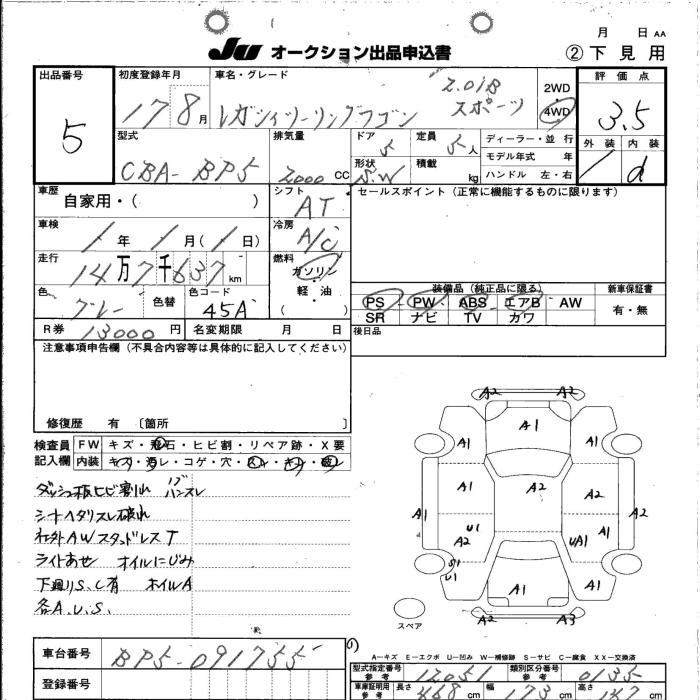 月 日 AA
JU オークション出品申込書 ②下見用
出品番号 初度登録年月 車名・グレード 2WD 評価点
5 17 8月 レガシィツーリングワゴン 2.0iB スポーツ 4WD 3.5
型式 排気量 ドア 定員 ディーラー・並行 外装 内装
CBA-BP5 2000 CC 5 5人 モデル年式 年 d
形状 S.W 積載 kg ハンドル 左・右
車歴 シフト セールスポイント (正常に機能するものに限ります)
自家用・( ) AT
車検 冷房
年 月( 日) A/C
走行 燃料
14万7千637km ガソリン・軽・油 ( )
装備品 (純正品に限る) 新車保証書
色 グレー 色替 色コード 45A PS PW ABS エアB AW 有・無
SR ナビ TV カワ
R券 13000円 名変期限 月 日 後日品
注意事項申告欄 (不具合内容等は具体的に記入してください)
修復歴 有 〔箇所 〕
検査員 FW キズ・飛石・ヒビ割・リペア跡・X要
記入欄 内装 キズ・汚レ・コゲ・穴・スレ・キレ・破レ
ダッシュ板ヒビ割れ ハンスレ
シートヘタリスレ破れ
社外AWスタッドレスT
ライトあせ オイルにじみ
下廻りS.C有 ホイルA
各A.U.S.
A2 A2
A1
A1 A1
A1 A2
A1 A2 A2
U1
A2 UA1 A1
S1
U1 A1
A1
A2 A3
スペア
A-キズ E-エクボ U-凹み W-補修跡 S-サビ C-腐食 XX-交換済
車台番号 BP5-091755
型式指定番号 参考 12051 類別区分番号 参考 0135
登録番号
車庫証明用 参考 長さ 468cm 幅 173cm 高さ 147cm